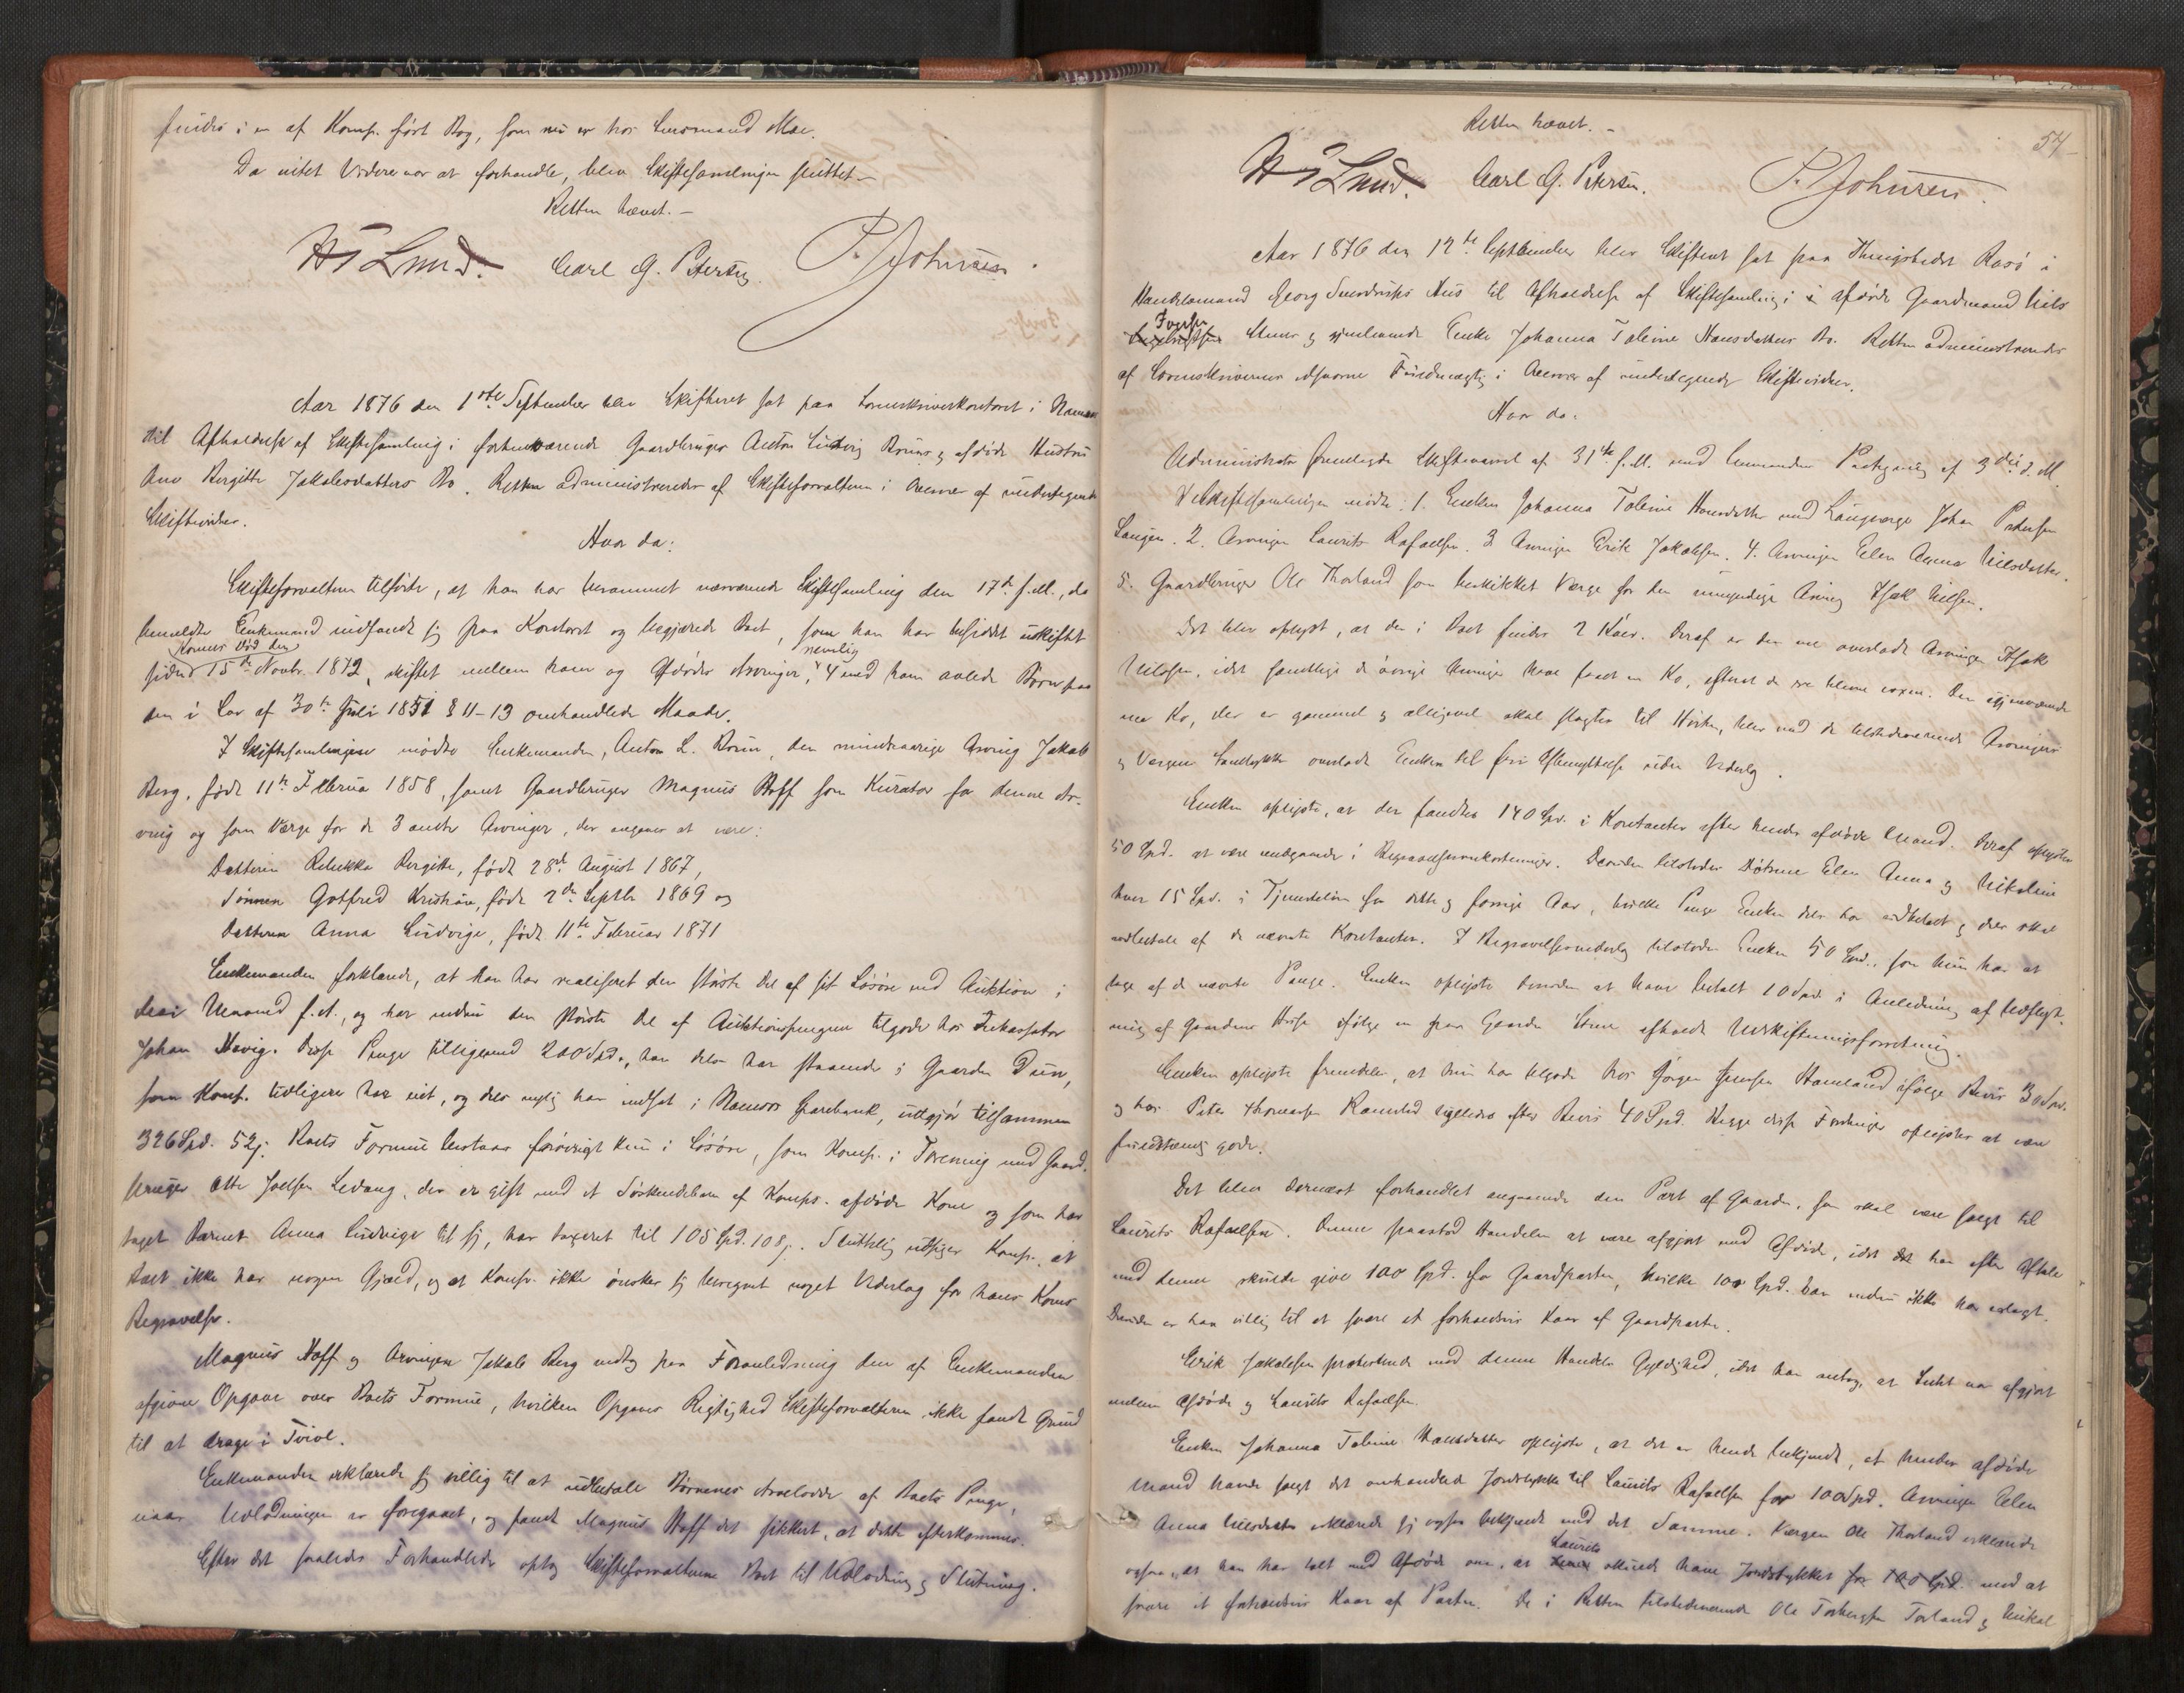 findes i en af Komp. ført Bog, som nu er hos Lensmand Moe.
Da intet Videre var at forhandle, blev Skiftesamlingen sluttet.
Retten hævet. -
Lund. Carl G. Petersen. P. Johnsen.
Aar 1876 den 1ste September blev Skifteret sat paa Sorenskriverkontoret i Namsos
til Afholdelse af Skiftesamling i forhenværende Gaardbruger Anton Ludvig Bruns og afdøde Hustru
Bergitte Jakobsdatters Bo. Retten administreredes af Skifteforvalteren i Overvær af undertegnede
Skiftevidner.
Hvor da:
Skifteforvalteren tilførte, at han har berammet nærværende Skiftesamling den 17de f. M., da
bemeldte Enkemand indfandt sig paa Kontoret og begjærede Boet, som han har besiddet uskiftet
Konens Død den nemlig
siden 15de Novbr. 1872, skiftet mellem ham og Afdødes Arvinger, 4 med ham avlede Børn paa
den i Lov af 30te Juli 1851 § 11-13 omhandlede Maade.
I Skiftesamlingen mødte Enkemanden, Anton L. Brun, den mindreaarige Arving Jakob
Berg, født 11te Februar 1858, samt Gaardbruger Magnus Hoff som Kurator for denne Ar-
ving og som Værge for de 3 andre Arvinger, der angaves at være:
Datteren Rebekka Bergitte, født 28de August 1867,
Sønnen Gotfred Kristian, født 2den Septbr. 1869 og
Datteren Anna Ludvige, født 11te Februar 1871
Enkemanden forklarede, at han har realiseret den største Del af sit Løsøre ved Auktion i
f. A., og har endnu den største Del af Auktionspengene tilgode hos Inkassator
Johan Havig. Disse Penge tilligemed 200 Spd., han dels har staaende i Gaarden Duun,
som Komp. tidligere har eiet, og dels nylig har indsat i Namsos Sparebank, udgjør tilsammen
326 Spd. 52 ß. Boets Formue bestaar forøvrigt kun i Løsøre, som Komp. i Forening med Gaard-
bruger Otte Joelsen Ledang, der er gift med et Søskendebarn af Komps. afdøde Kone og som har
taget Barnet Anna Ludvige til sig, har taxeret til 105 Spd. 108 ß. Sluttelig udsiger Komp. at
Boet ikke har nogen Gjæld, og at Komp. ikke ønsker sig beregnet noget Vederlag for hans Kones
Begravelse.
Magnus Hoff og Arvingen Jakob Berg vedtog paa Foranledning den af Enkemanden
afgivne Opgave over Boets Formue, hvilken Opgaves Rigtighed Skifteforvalteren ikke fandt Grund
til at drage i Tvivl.
Enkemanden erklærede sig villig til at udbetale Børnenes Arvelodde af Boets Penge,
naar Udlodningen er foregaaet, og fandt Magnus Hoff det sikkert, at dette efterkommes.
Efter det saaledes Forhandlede optog Skifteforvalteren Boet til Udlodning og Slutning.
Retten hævet. -
54
Lund. Carl G. Petersen. P. Johnsen.
Aar 1876 den 12te September blev Skifteret sat paa Thingstedet Rosø i
Handelsmand Georg Sverdrups Hus til Afholdelse af Skiftesamling i afdøde Gaardmand Nils
og gjenlevende Enke Johanna Toline Hansdatters Bo. Retten administreredes
af Sorenskriverens edsvorne Fuldmægtig i Overvær af undertegnede Skiftevidner.
Hvor da:
Administrator fremlagde Skiftevarsel af 31te f. M. med Lensmandens Paategning af 3die d. M.
Ved Skiftesamlingen mødte: 1. Enken Johanna Toline Hansdatter med Laugværge Johan Pedersen
2. Arvingen Laurits Rafaelsen. 3. Arvingen Erik Jakobsen. 4. Arvingen Elen Anna Nilsdatter.
5. Gaardbruger Ole Thorland som beskikket Værge for den umyndige Arving Isak Nilsen.
Det blev oplyst, at der i Boet findes 2 Køer. Deraf er den ene overladt Arvingen Isak
Nilsen, idet samtlige de øvrige Arvinger have faaet en Ko, efterat de ere blevne voxne. Den gjenværende
ene Ko, der er gammel og alligevel skal slagtes til Høsten, blev med de tilstedeværende Arvingers
og Værgens Samtykke overladt Enken til fri Afbenyttelse uden Vederlag.
Enken oplyste, at der fandtes 140 Spd. i Kontanter efter hendes afdøde Mand. Deraf oplystes
50 Spd. at være medgaaede i Begravelsesomkostninger. Desuden tilstodes Døtrene Elen Anna og Nikoline
hver 15 Spd. i Tjenesteløn for dette og forrige Aar, hvilke Penge Enken dels har udbetalt og dels skal
udbetale af de nævnte Kontanter. I Begravelsesvederlag tilstodes Enken 50 Spd., som hun har at
tage af de nævnte Penge. Enken oplyste desuden at have betalt 10 Spd. i Anledning af Udflyt-
ning af Gaardens Huse ifølge en paa Gaarden afholdt Udskiftningsforretning.
Enken oplyste fremdeles, at hun har tilgode hos Jørgen Jensen Hamland ifølge Bevis 30 Spd.
og hos Peter Thomassen ligeledes efter Bevis 40 Spd. Begge disse Fordringer oplystes at være
fuldstændig gode.
Det blev dernæst forhandlet angaaende den Part af Gaarden, som skal være solgt til
Laurits Rafaelsen. Denne paastod Handelen at være afgjort med Afdøde, idet han efter Aftale
med denne skulde give 100 Spd. for Gaardparten, hvilke 100 Spd. han endnu ikke har erlagt.
Desuden er han villig til at svare et forholdsvis Kaar af Gaardparten.
Erik Jakobsen protesterede mod denne Handels Gyldighed, idet han antog, at Intet var afgjort
mellem Afdøde og Laurits Rafaelsen.
Enken Johanna Toline Hansdatter oplyste, at det er hende bekjendt, at hendes afdøde
Mand havde solgt det omhandlede Jordstykke til Laurits Rafaelsen for 100 Spd. Arvingen Elen
Anna Nilsdatter erklærede sig ogsaa bekjendt med det Samme. Værgen Ole Thorland erklærede
Laurits
ogsaa, at han har talt med Afdøde om, at skulde have Jordstykket for 100 Spd. mod at
svare et forholdsvis Kaar af Parten. De i Retten tilstedeværende Ole Torbergsen Torland og Mikal